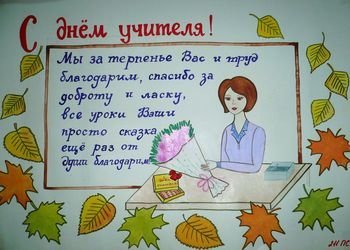 С днём учителя!
Мы за терпенье Вас и труд
благодарим, спасибо за
доброту и ласку,
все уроки Ваши
просто сказка
ещё раз от
души благодарим